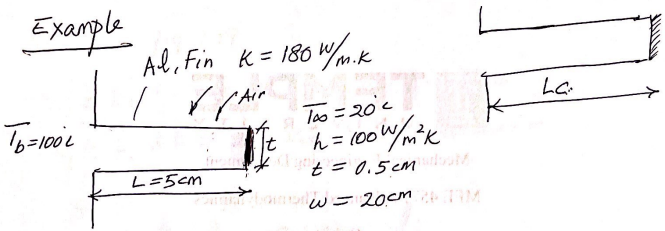 Example
Al, Fin K = 180 W/m.K
Air
T_b = 100°c
t
L = 5 cm
T∞ = 20°c
h = 100 W/m²K
t = 0.5 cm
w = 20 cm
Lc